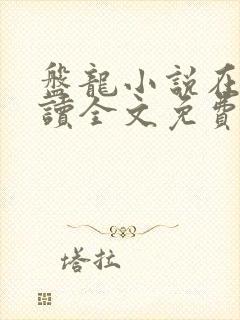 盤龍小說在
讀全文免費
塔拉